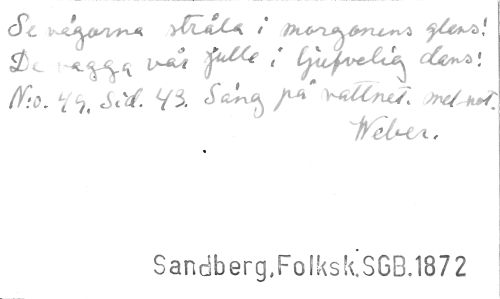 Se vågorna stråla i morgonens glans!
De vagga vår julle i ljufvelig dans!
N:o. 49. Sid. 43. Sång på vattnet. med not.
Weber.
Sandberg,Folksk.SGB.1872